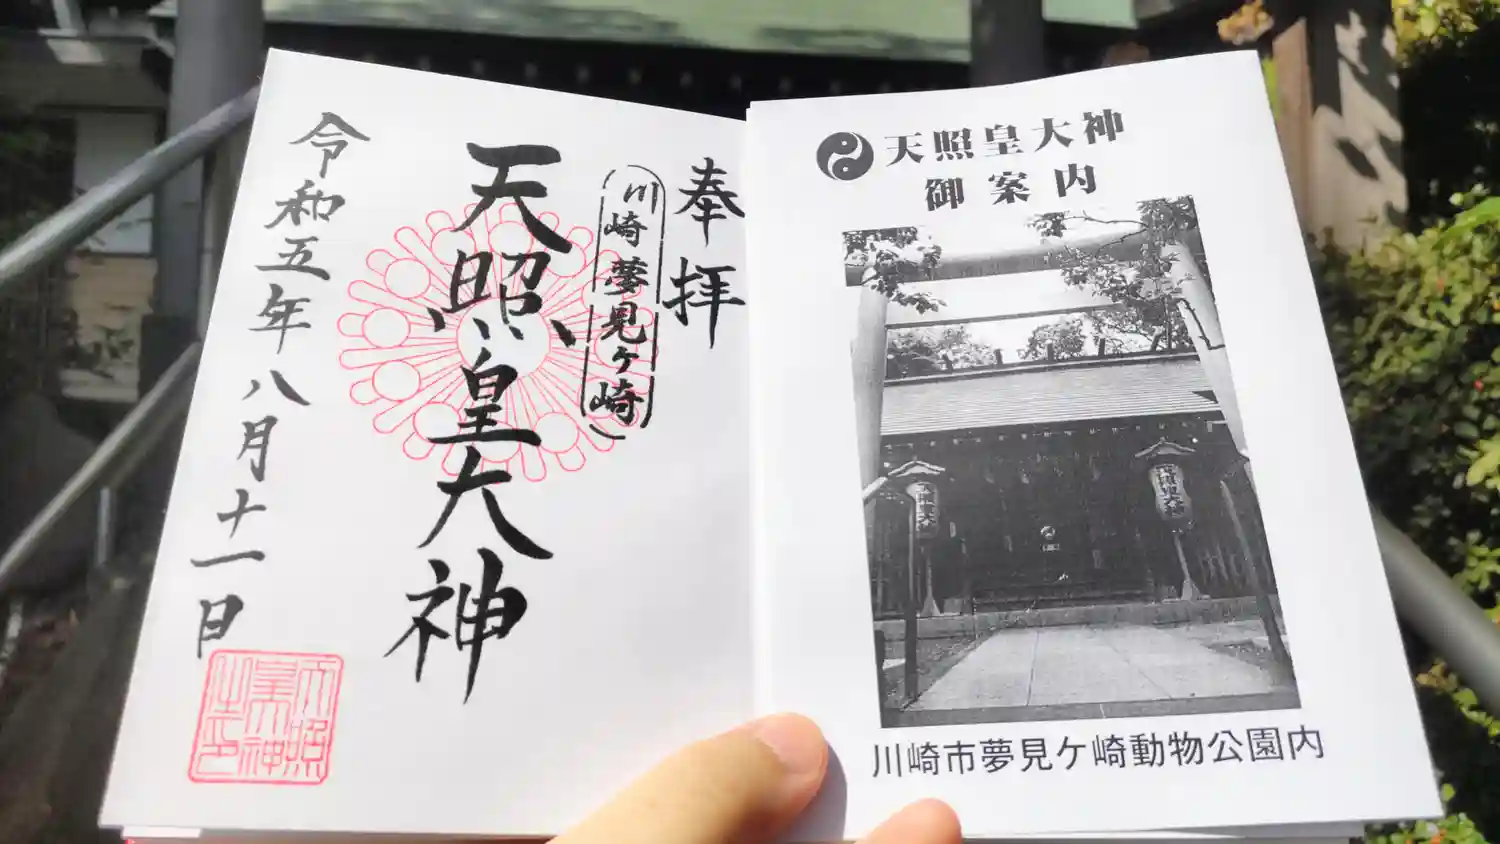 奉拝
川崎夢見ヶ崎
天照皇大神
令和五年八月十一日
天照皇大神之印
天照皇大神
御案内
川崎市夢見ケ崎動物公園内